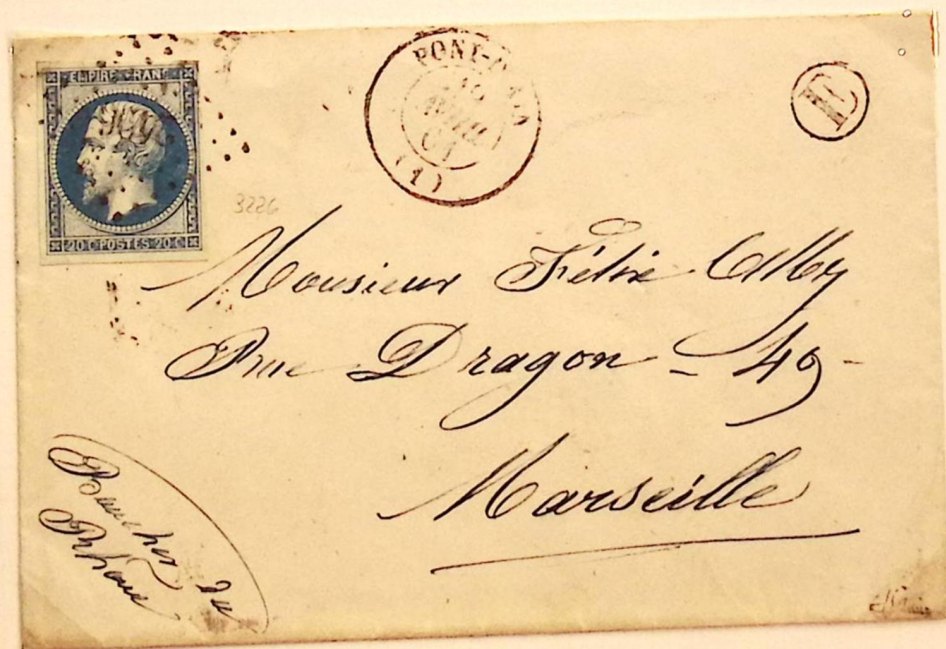 EMPIRE FRANC
20 C POSTES 20 C
(1)
3226
Monsieur Félix Alby
Rue Dragon - 49 -
Marseille
Bouches du
Rhône